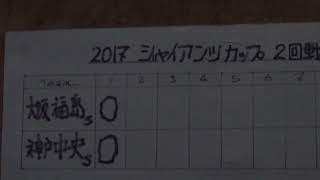 2017 ジャイアンツカップ 2回戦
Team 1 2 3 4 5 6 7 8
大阪福島S 0
神戸中央S 0